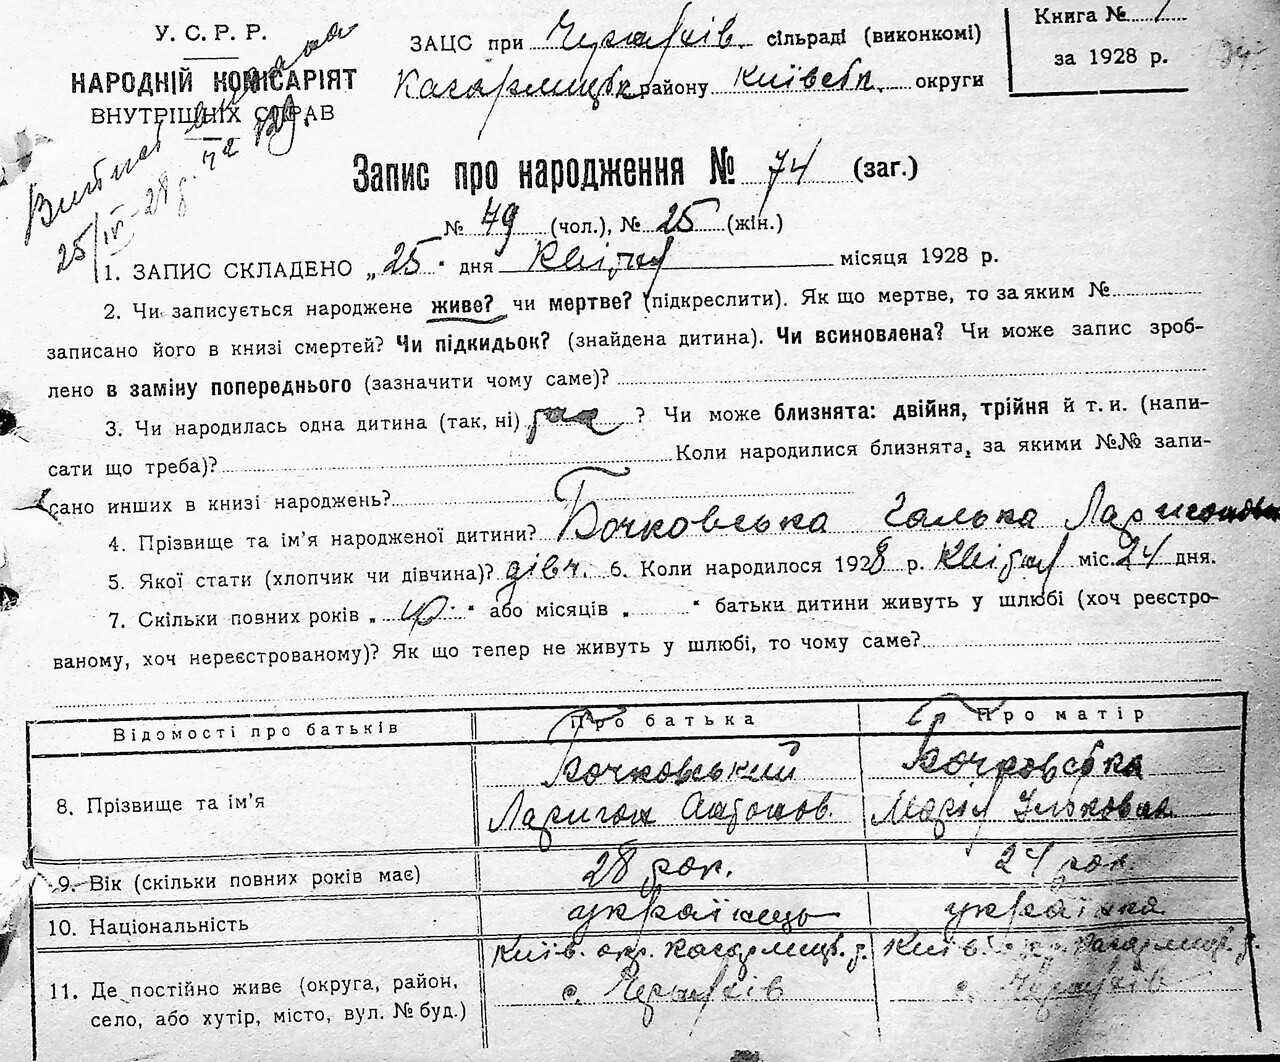 У. С. Р. Р.
НАРОДНІЙ КОМІСАРІЯТ
ВНУТРІШНІХ СПРАВ
25/IV-28 р.
ЗАЦС при Черняхів. сільраді (виконкомі)
Кагарлицьк. району Київськ. округи
Книга № 1
за 1928 р.
Запис про народження № 74 (заг.)
№ 49 (чол.), № 25 (жін.)
1. ЗАПИС СКЛАДЕНО „25“ дня квітня місяця 1928 р.
2. Чи записується народжене живе? чи мертве? (підкреслити). Як що мертве, то за яким №
записано його в книзі смертей? Чи підкидьок? (знайдена дитина). Чи всиновлена? Чи може запис зроб-
лено в заміну попереднього (зазначити чому саме)?
3. Чи народилась одна дитина (так, ні) ? Чи може близнята: двійня, трійня й т. и. (напи-
сати що треба)? Коли народилися близнята, за якими №№ запи-
сано инших в книзі народжень?
4. Прізвище та ім'я народженої дитини? Бочковська Галька
5. Якої стати (хлопчик чи дівчина)? дівч. 6. Коли народилося 1928 р. квітня міс. 24 дня.
7. Скільки повних років „ “ або місяців „ “ батьки дитини живуть у шлюбі (хоч реєстро-
ваному, хоч нереєстрованому)? Як що тепер не живуть у шлюбі, то чому саме?
Відомості про батьків Про батька Про матір
8. Прізвище та ім'я Бочковський Ларигон Антонов. Бочковська Марія Ульковна
9. Вік (скільки повних років має) 28 рок. 24 рок.
10. Національність українець українка
11. Де постійно живе (округа, район, Київ. окр. Кагарлицьк. р. Київ. окр. Кагарлицьк. р.
село, або хутір, місто, вул. № буд.) с. Черняхів с. Черняхів